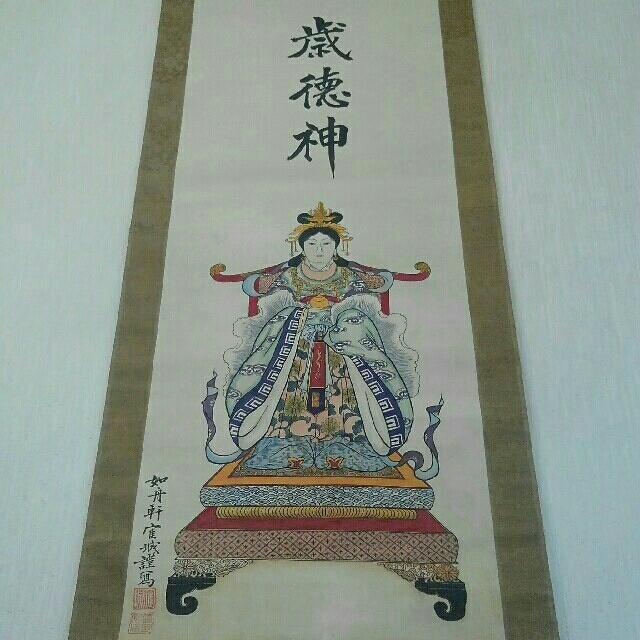 歳德神
如丹軒宦城謹寫